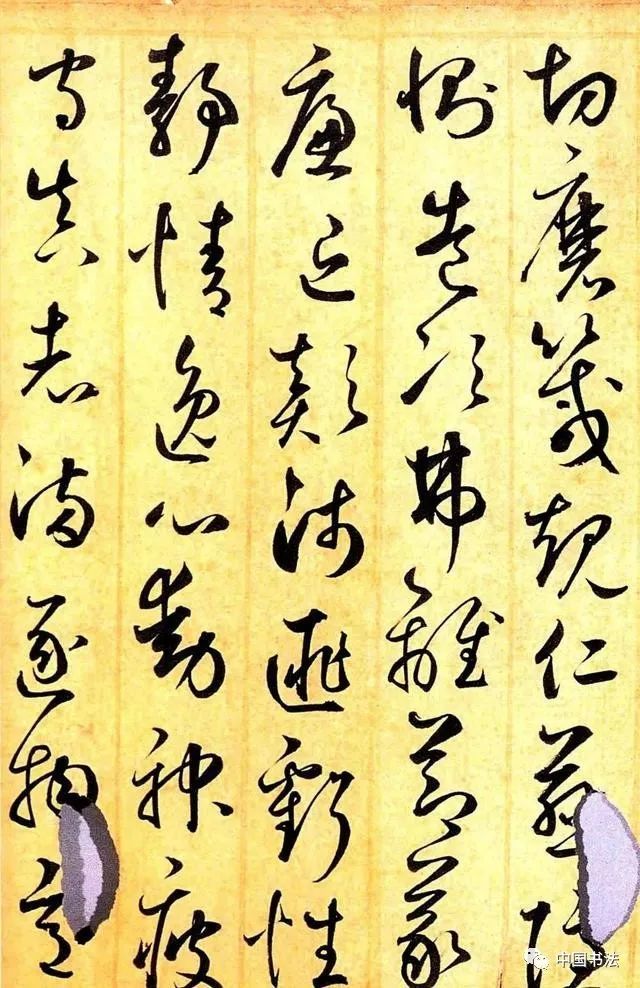 切磨箴規仁慈隱
惻造次弗離節義
廉退顛沛匪虧性
靜情逸心動神疲
守真志滿逐物意
中国书法